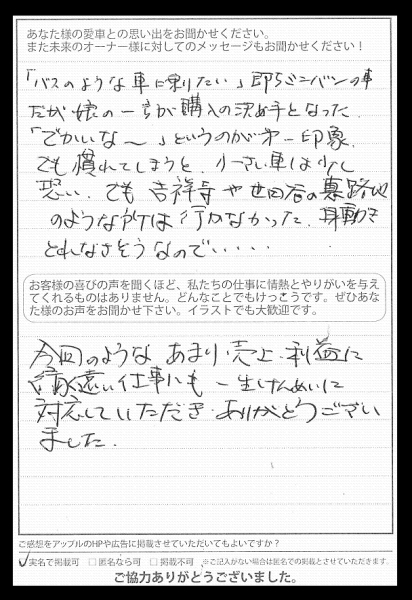 あなた様の愛車との思い出をお聞かせください。
また未来のオーナー様に対してのメッセージもお聞かせください！
「バスのような車に乗りたい」即ちミニバンの車
だが娘の一言が購入の決め手となった。
「でかいな～」というのが第一印象。
でも慣れてしまうと、小さい車は少し
恐い。でも吉祥寺や世田谷の裏路地
のような所は行かなかった。身動き
とれなさそうなので・・・・
お客様の喜びの声を聞くほど、私たちの仕事に情熱とやりがいを与え
てくれるものはありません。どんなことでもけっこうです。ぜひあな
た様のお声をお聞かせ下さい。イラストでも大歓迎です。
今回のような あまり売上・利益に
縁遠い仕事にも一生けんめいに
対応していただき、ありがとうござい
ました。
ご感想をアップルのHPや広告に掲載させていただいてもよいですか？
✓実名で掲載可 □匿名なら可 □掲載不可 ※ご記入がない場合は匿名での掲載とさせていただきます。
ご協力ありがとうございました。